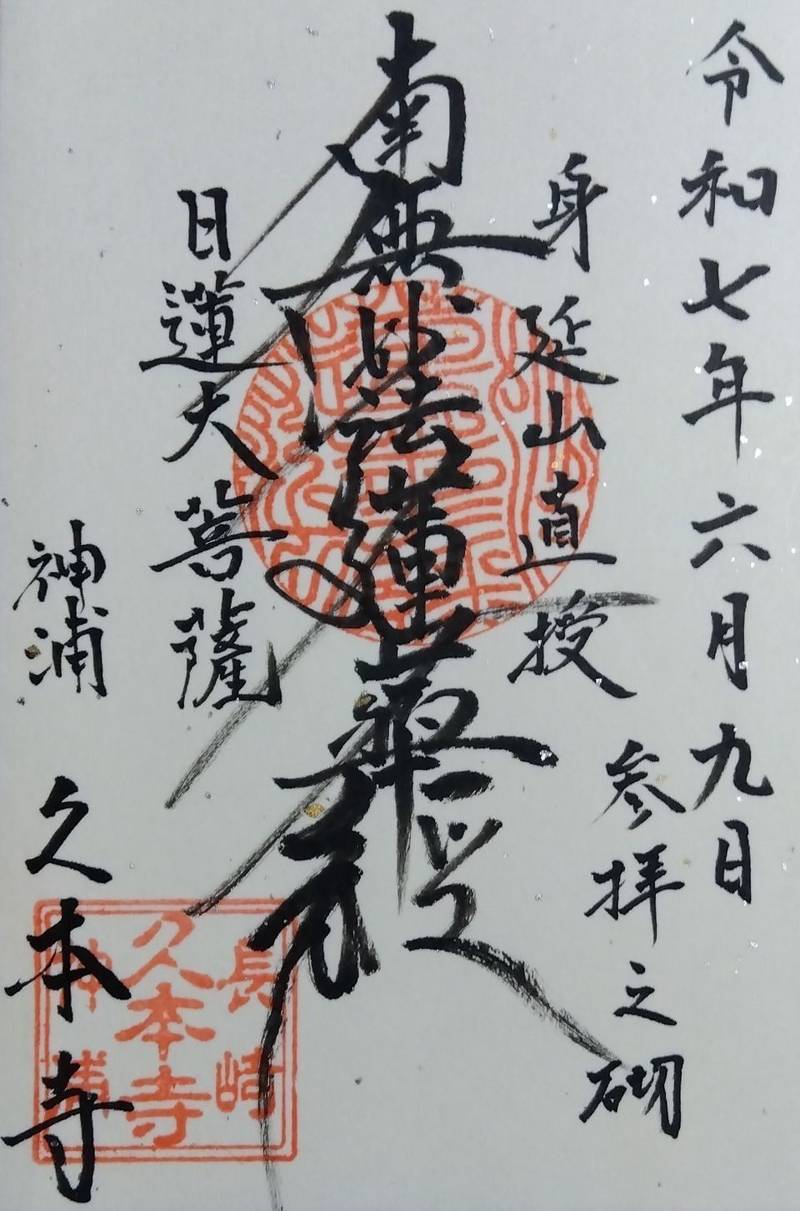 令和七年六月九日
参拝之砌
身延山直授
南無妙法蓮華経
日蓮大菩薩
神浦 久本寺
長崎
久本寺
神浦